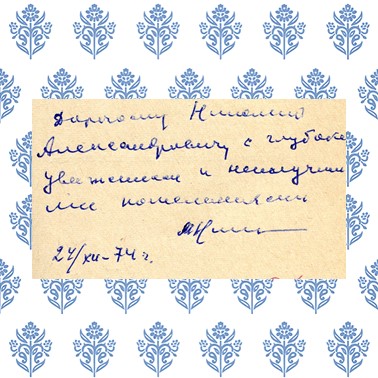 Дорогому Николаю
Александровичу с глубоки
уважением и наилучши
ми пожеланиями
24/XII-74 г.